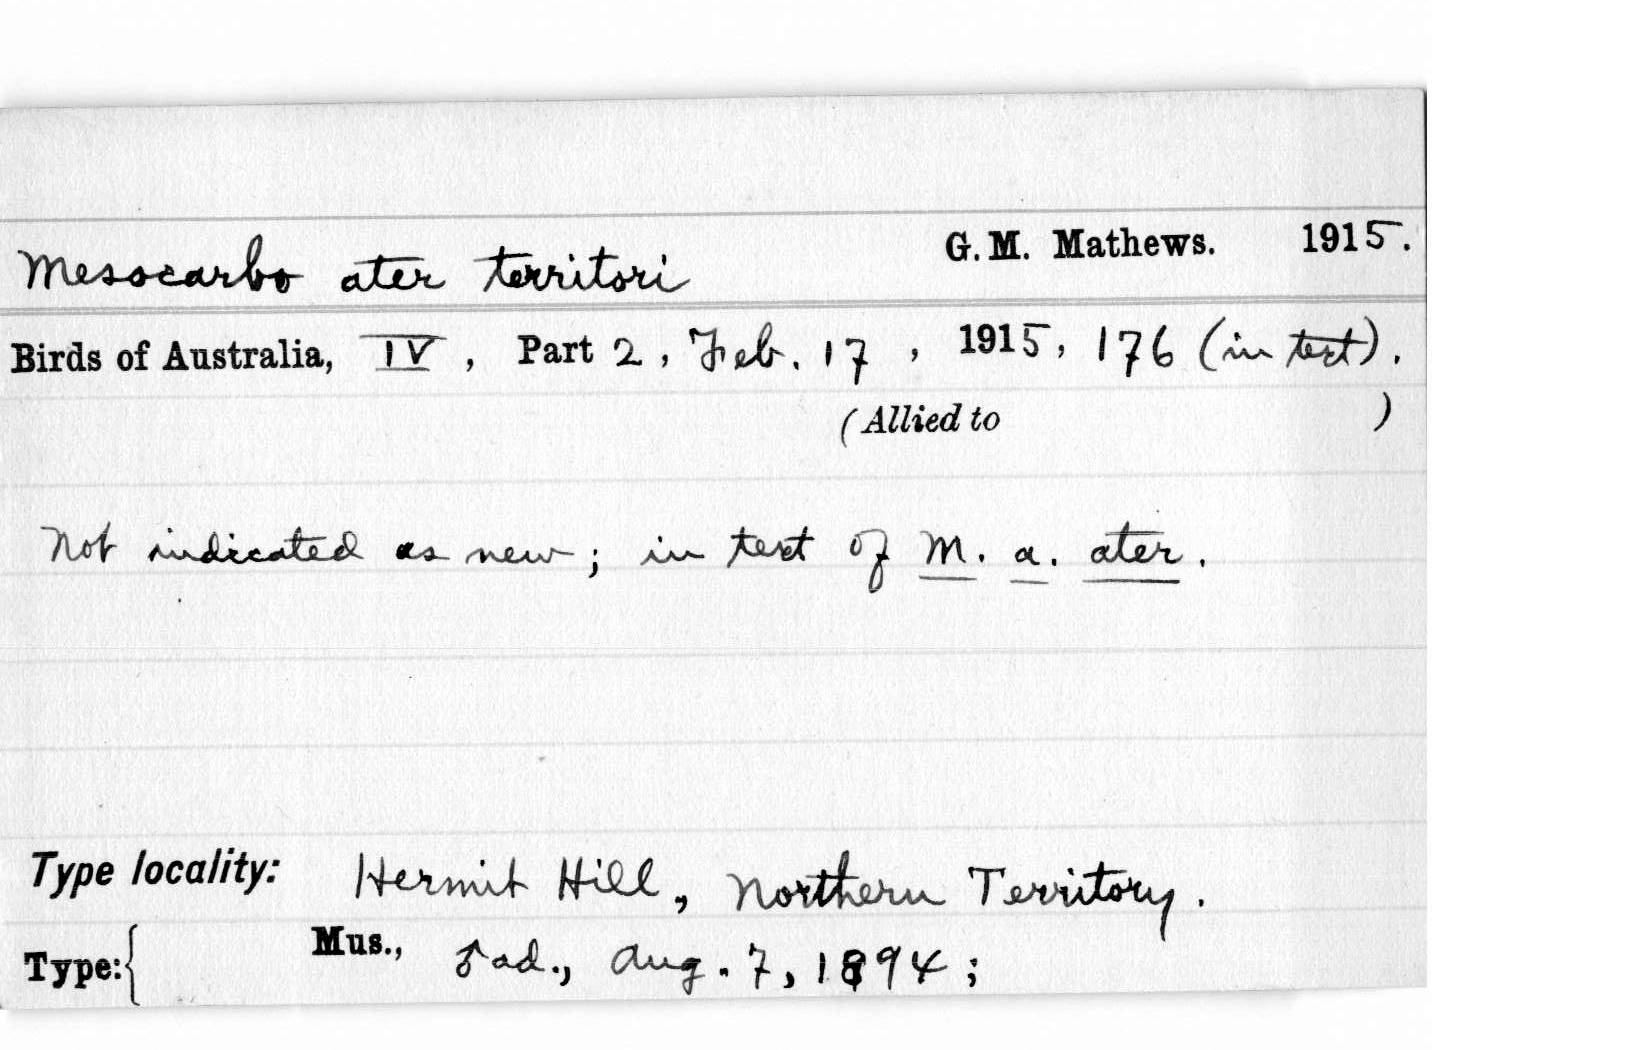 Mesocarbo ater territori G. M. Mathews. 1915.
Birds of Australia, IV, Part 2, Feb. 17, 1915, 176 (in text).
(Allied to )
Not indicated as new; in text of M. a. ater.
Type locality: Hermit Hill, Northern Territory.
Type:{ Mus., ♂ ad., Aug. 7, 1894;